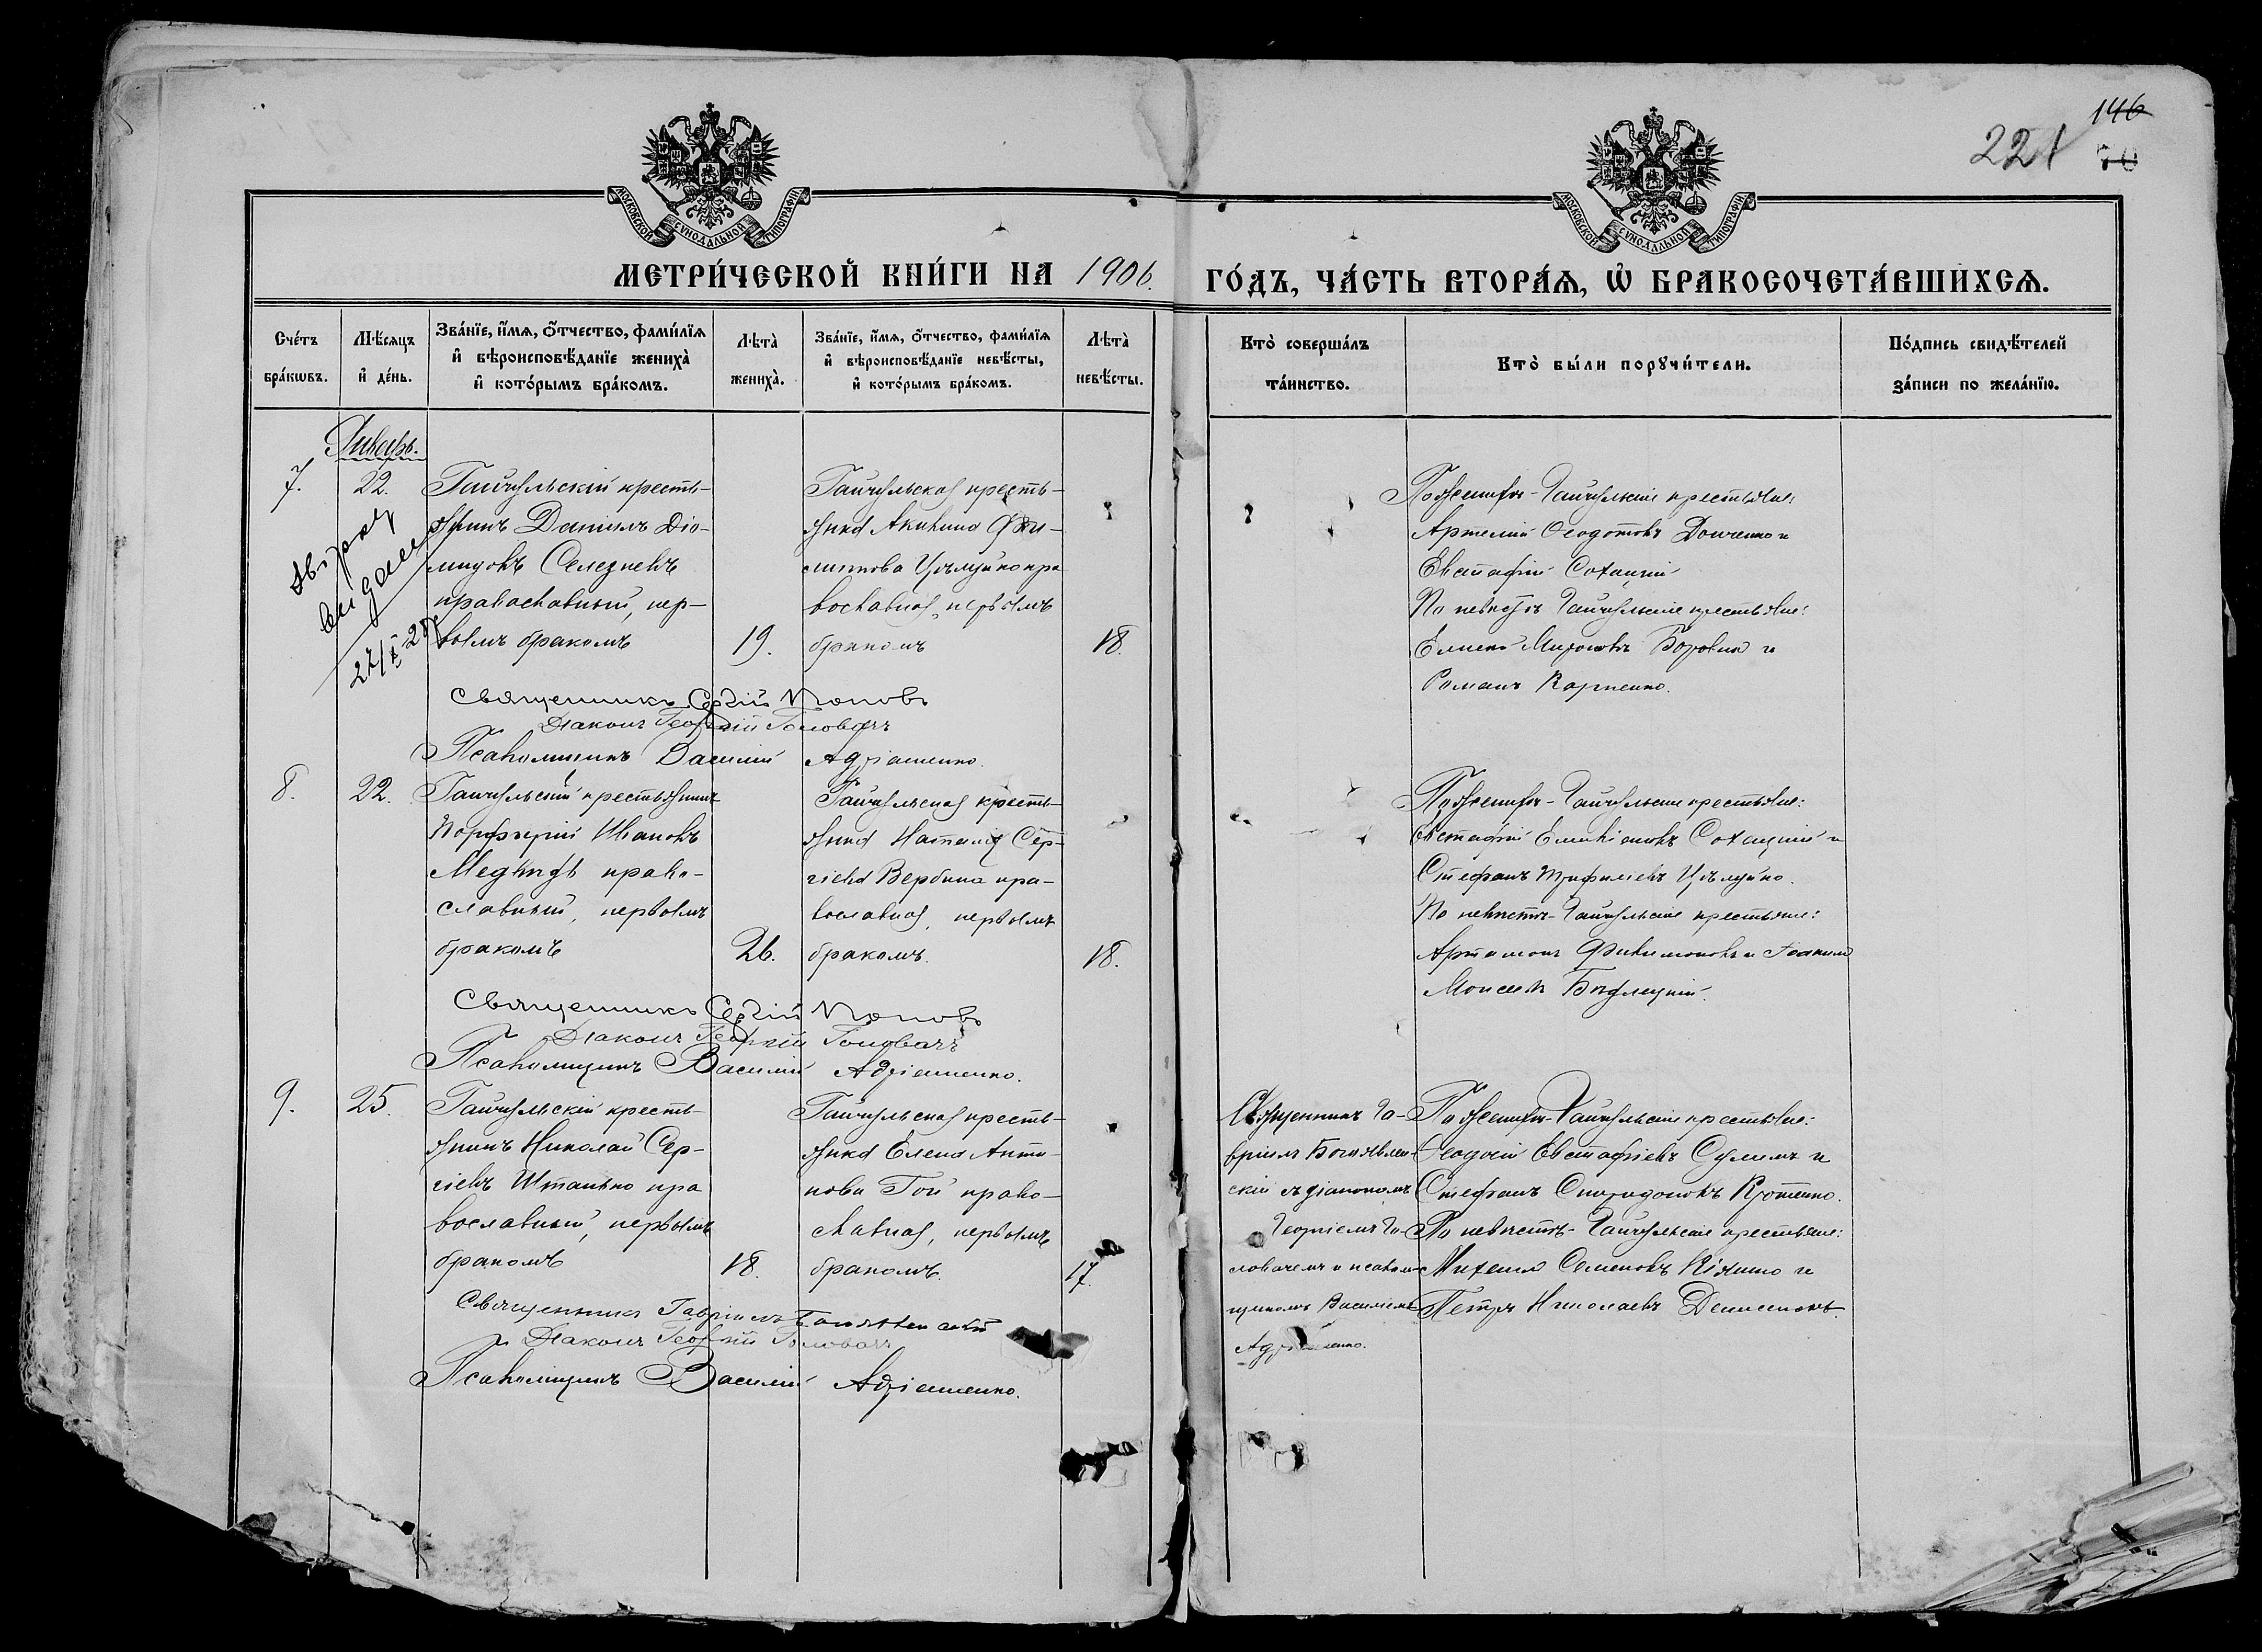 146
221
70
МОСКОВСКОЙ СѴНОДАЛЬНОЙ ТИПОГРАФІИ.
МОСКОВСКОЙ СѴНОДАЛЬНОЙ ТИПОГРАФІИ.
МЕТРИ́ЧЕСКОЙ КНИ́ГИ НА 1906. ГО́ДЪ, ЧА́СТЬ ВТОРА́Я, Ѡ҆ БРАКОСОЧЕТА́ВШИХСЯ.
Сче́тъ бра́кѡвъ.
Мѣ́сяцъ и҆ де́нь.
Зва́нїе, и҆́мя, ѻ҆́тчество, фами́лїя
и҆ вѣроисповѣ́данїе жениха̀
и҆ кото́рымъ бра́комъ.
Лѣта̀ жениха̀.
Зва́нїе, и҆́мя, ѻ҆́тчество, фами́лїя
и҆ вѣроисповѣ́данїе невѣ́сты,
и҆ кото́рымъ бра́комъ.
Лѣта̀ невѣ́сты.
Кто̀ соверша́лъ
та́инство.
Кто̀ бы́ли порꙋчи́тели.
По́дпись свидѣ́телей
за́писи по жела́нїю.
Январь.
7.
22.
Гайчульскій кресть-
янинъ Даніилъ Діо-
мидовъ Селезневъ
православный, пер-
вымъ бракомъ
19.
Гайчульская кресть-
янка Акилина
Цѣлуйко пра
вославная, первымъ
бракомъ
18.
По женихѣ - Гайчульскіе крестьяне:
Артемій Ѳеодотовъ Донченко и
Евстафій Сохацкій
По невѣстѣ Гайчульскіе крестьяне:
Мироновъ Боровикъ и
Романъ Карпенко.
Священникъ Сергій Поповъ
Діаконъ Георгій Головачъ
Псаломщикъ Василій Адріашенко.
8.
22.
Гайчульскій крестьянинъ
Порфирій Ивановъ
Медвѣдь право-
славный, первымъ
бракомъ
26.
Гайчульская кресть-
янка Наталія Сер-
гіева Вербина пра-
вославная, первымъ
бракомъ.
18.
По женихѣ - Гайчульскіе крестьяне:
Евстафій Емиліановъ Сохацкій и
Стефанъ Трифиліевъ Цѣлуйко.
По невѣстѣ - Гайчульскіе крестьяне:
Артамонъ Филимоновъ и Іоакимъ
Моисеевъ
Священникъ Сергій Поповъ
Діаконъ Георгій Головачъ
Псаломщикъ Василій Адріашенко.
9.
25.
Гайчульскій кресть-
янинъ Николай Сер-
гіевъ Штанько пра
вославный, первымъ
бракомъ
18.
Гайчульская кресть-
янка Елена Анти-
пова Гой право-
славная, первымъ
бракомъ.
17.
Священникъ Га-
вріилъ Богоявлен-
скій съ діакономъ
Георгіемъ Го-
ловачемъ и псалом-
щикомъ Василіемъ
Адріашенко.
По женихѣ - Гайчульскіе крестьяне:
Ѳеодосій Евстафіевъ Сулима и
Стефанъ Спиридоновъ Кротенко.
По невѣстѣ - Гайчульскіе крестьяне:
Михаилъ Семеновъ Кіяшко и
Петръ Николаевъ Денисенковъ.
Священникъ Гавріилъ Богоявленскій
Діаконъ Георгій Головачъ
Псаломщикъ Василій Адріашенко.